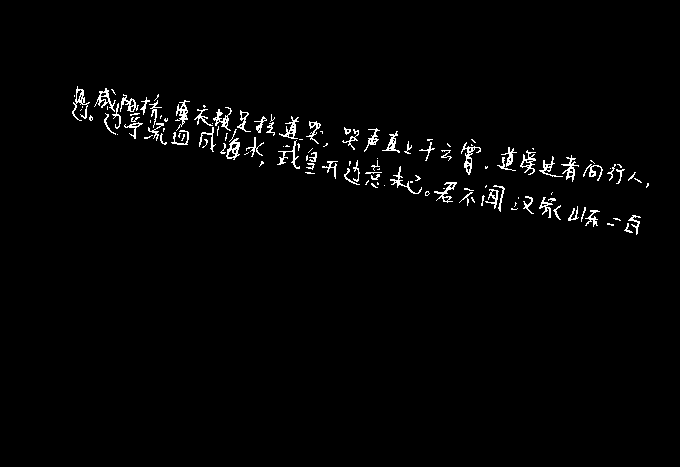 见咸阳桥。牵衣顿足拦道哭,哭声直上干云霄。道旁过者问行人,
边。边亭流血成海水,武皇开边意未已。君不闻汉家山东二百